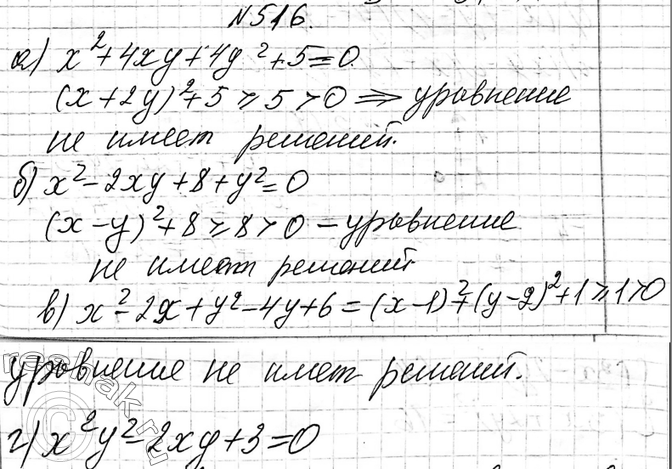 №516.
а) x²+4xy+4y²+5=0.
(x+2y)²+5⩾5>0 ⇒ уравнение
не имеет решений.
б) x²-2xy+8+y²=0
(x-y)²+8⩾8>0 – уравнение
не имеет решений
в) x²-2x+y²-4y+6=(x-1)²+(y-2)²+1⩾1>0
уравнение не имеет решений.
г) x²y²-2xy+3=0